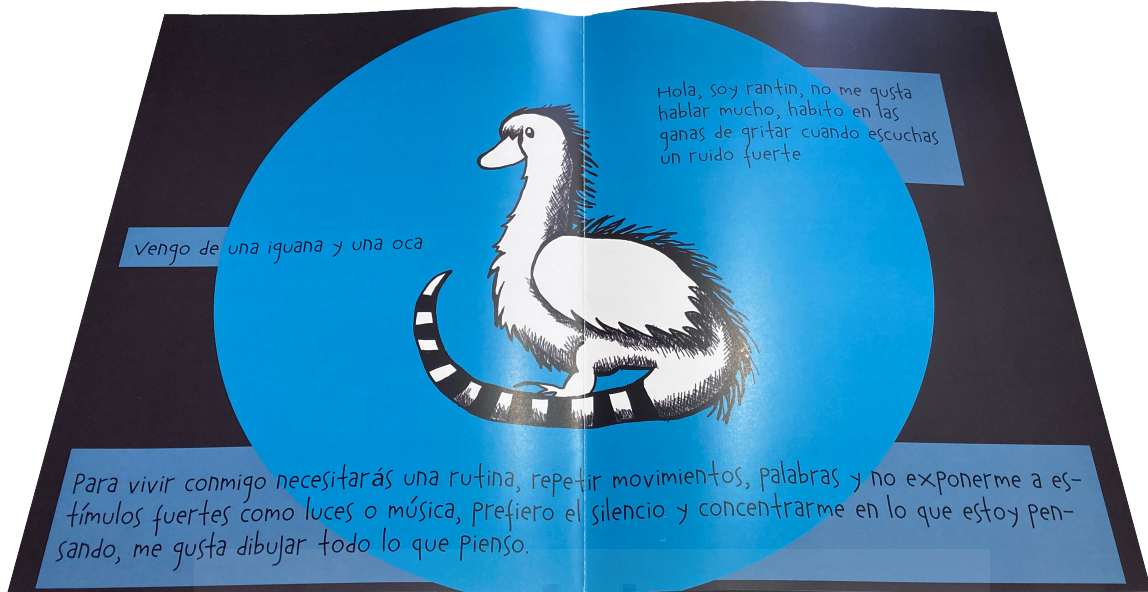 Hola, soy rantin, no me gusta
hablar mucho, habito en las
ganas de gritar cuando escuchas
un ruido fuerte
Vengo de una iguana y una oca
Para vivir conmigo necesitarás una rutina, repetir movimientos, palabras y no exponerme a es-
tímulos fuertes como luces o música, prefiero el silencio y concentrarme en lo que estoy pen-
sando, me gusta dibujar todo lo que pienso.